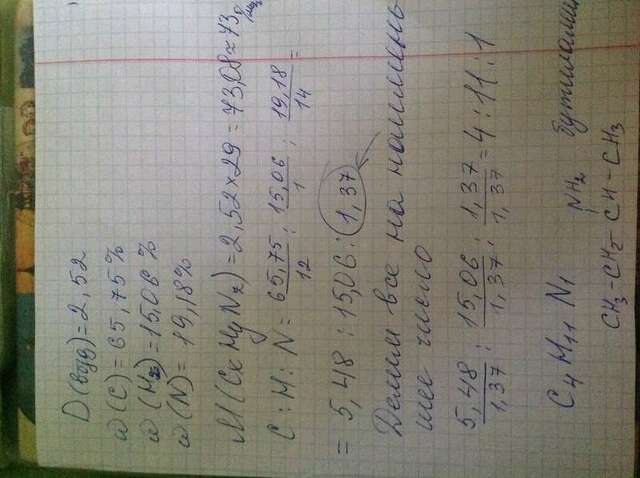 D(возд)=2,52
ω(C)=65,75%
ω(H)=15,06%
ω(N)=19,18%
M(CxHyNz)=2,52×29=73,08≈73
C:H:N=65,75/12:15,06/1:19,18/14=
=5,48:15,06:1,37
Делим все на наимень
шее число
5,48/1,37:15,06/1,37:1,37/1,37=4:11:1
C4H11N1
NH2 бутиламин
CH3-CH2-CH-CH3